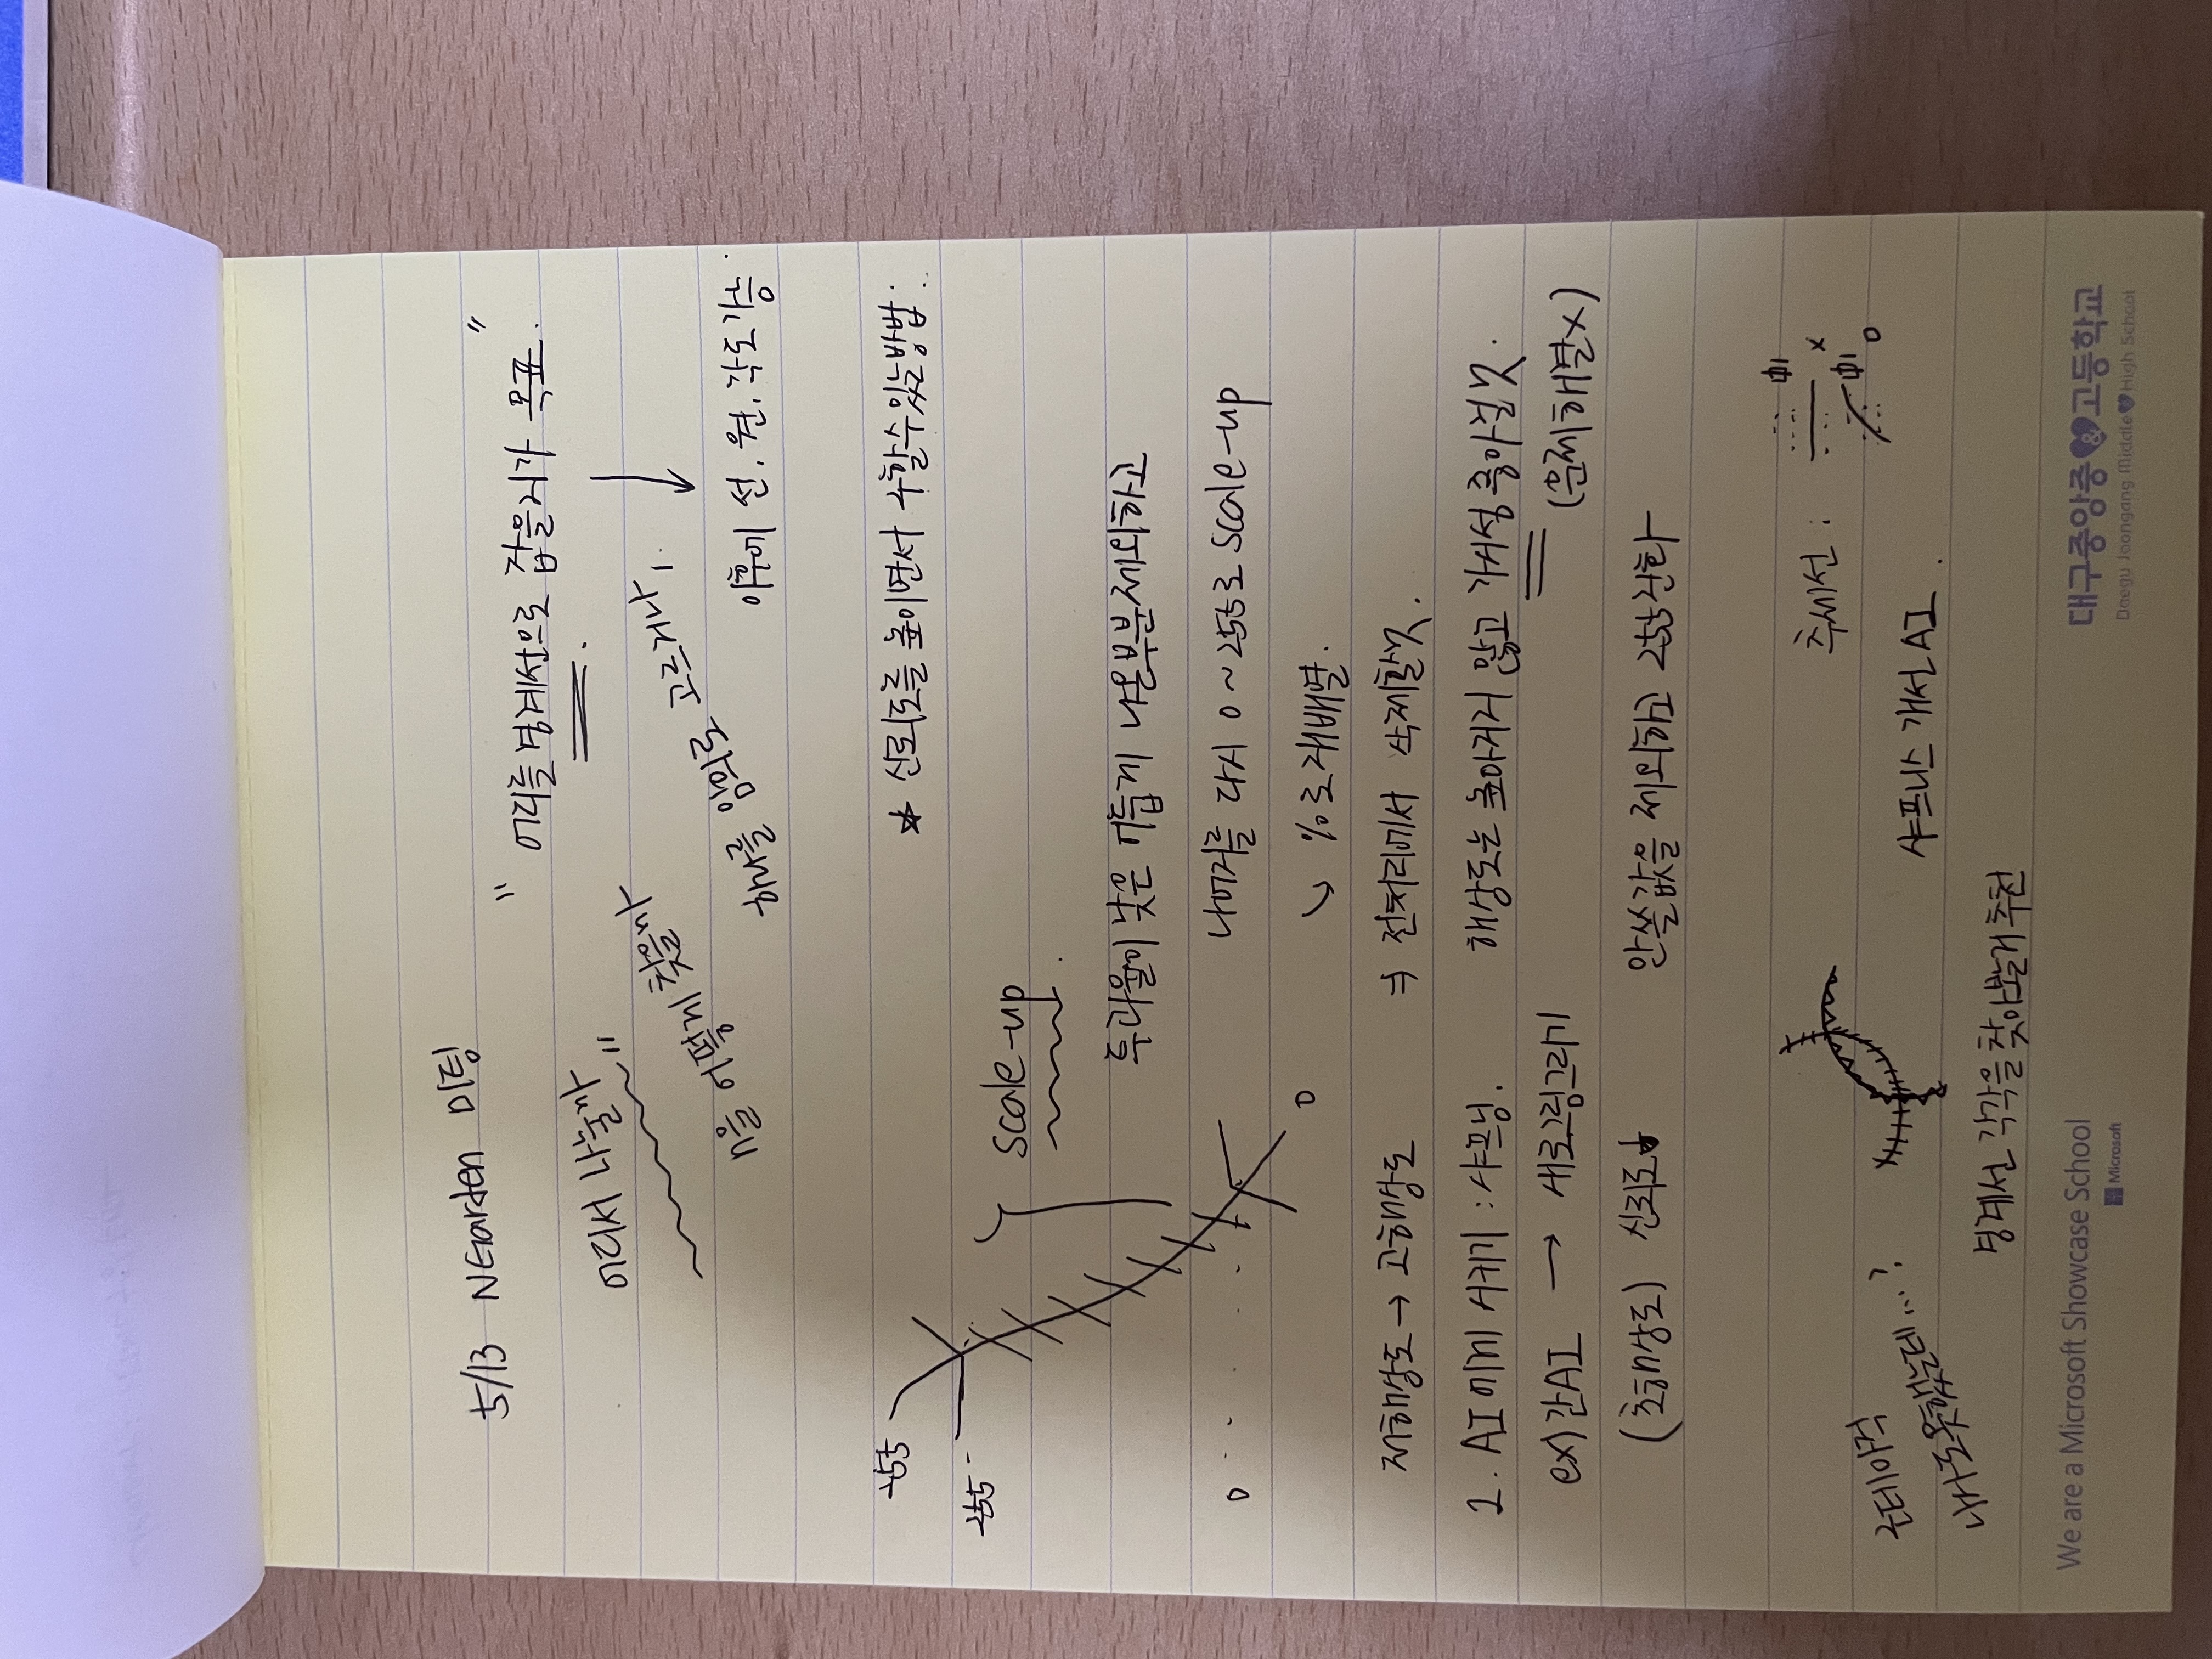 5/13 NGarden 미팅
" 어디를 경계선으로 잡을지가 목표. "
어디서 나눌까
n을 어떻게 찾을까 "
하나를 임의로 고르거나,
이후에 선, 원, 각도가능
255
255
* 신뢰도를 높이면서 구할수있는방법:
scale-up
투과율이 낮은 어둡게 나온부분제외하고
0
나머지를 다시 0 ~ 255로 scale-up
0
↘ %로재배열.
저해상도 → 고해상도
⇒ 전처리에서 삭제할것.
2. AI에게 시키기 : 샤프닝.
해상도는 높아지지 않고 가시성 좋아질것.
ex) 간AI → 새로그림그리기
(문제해결x)
(초해상도) 신뢰도↓
안쓸값을 제외하고 255진화
추세선 :
x
0
나사도못했는데...?
샤프니스 개선 AI.
경계선 각각을 찾아볼거 추천
We are a Microsoft Showcase School
Microsoft
대구중앙중&고등학교
Daegu Joongang Middle High School